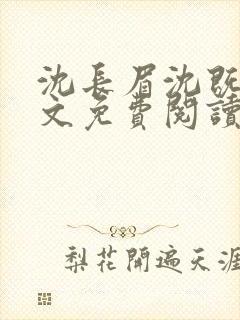 沈長眉沈既
文免費閱讀
梨花開遍天涯